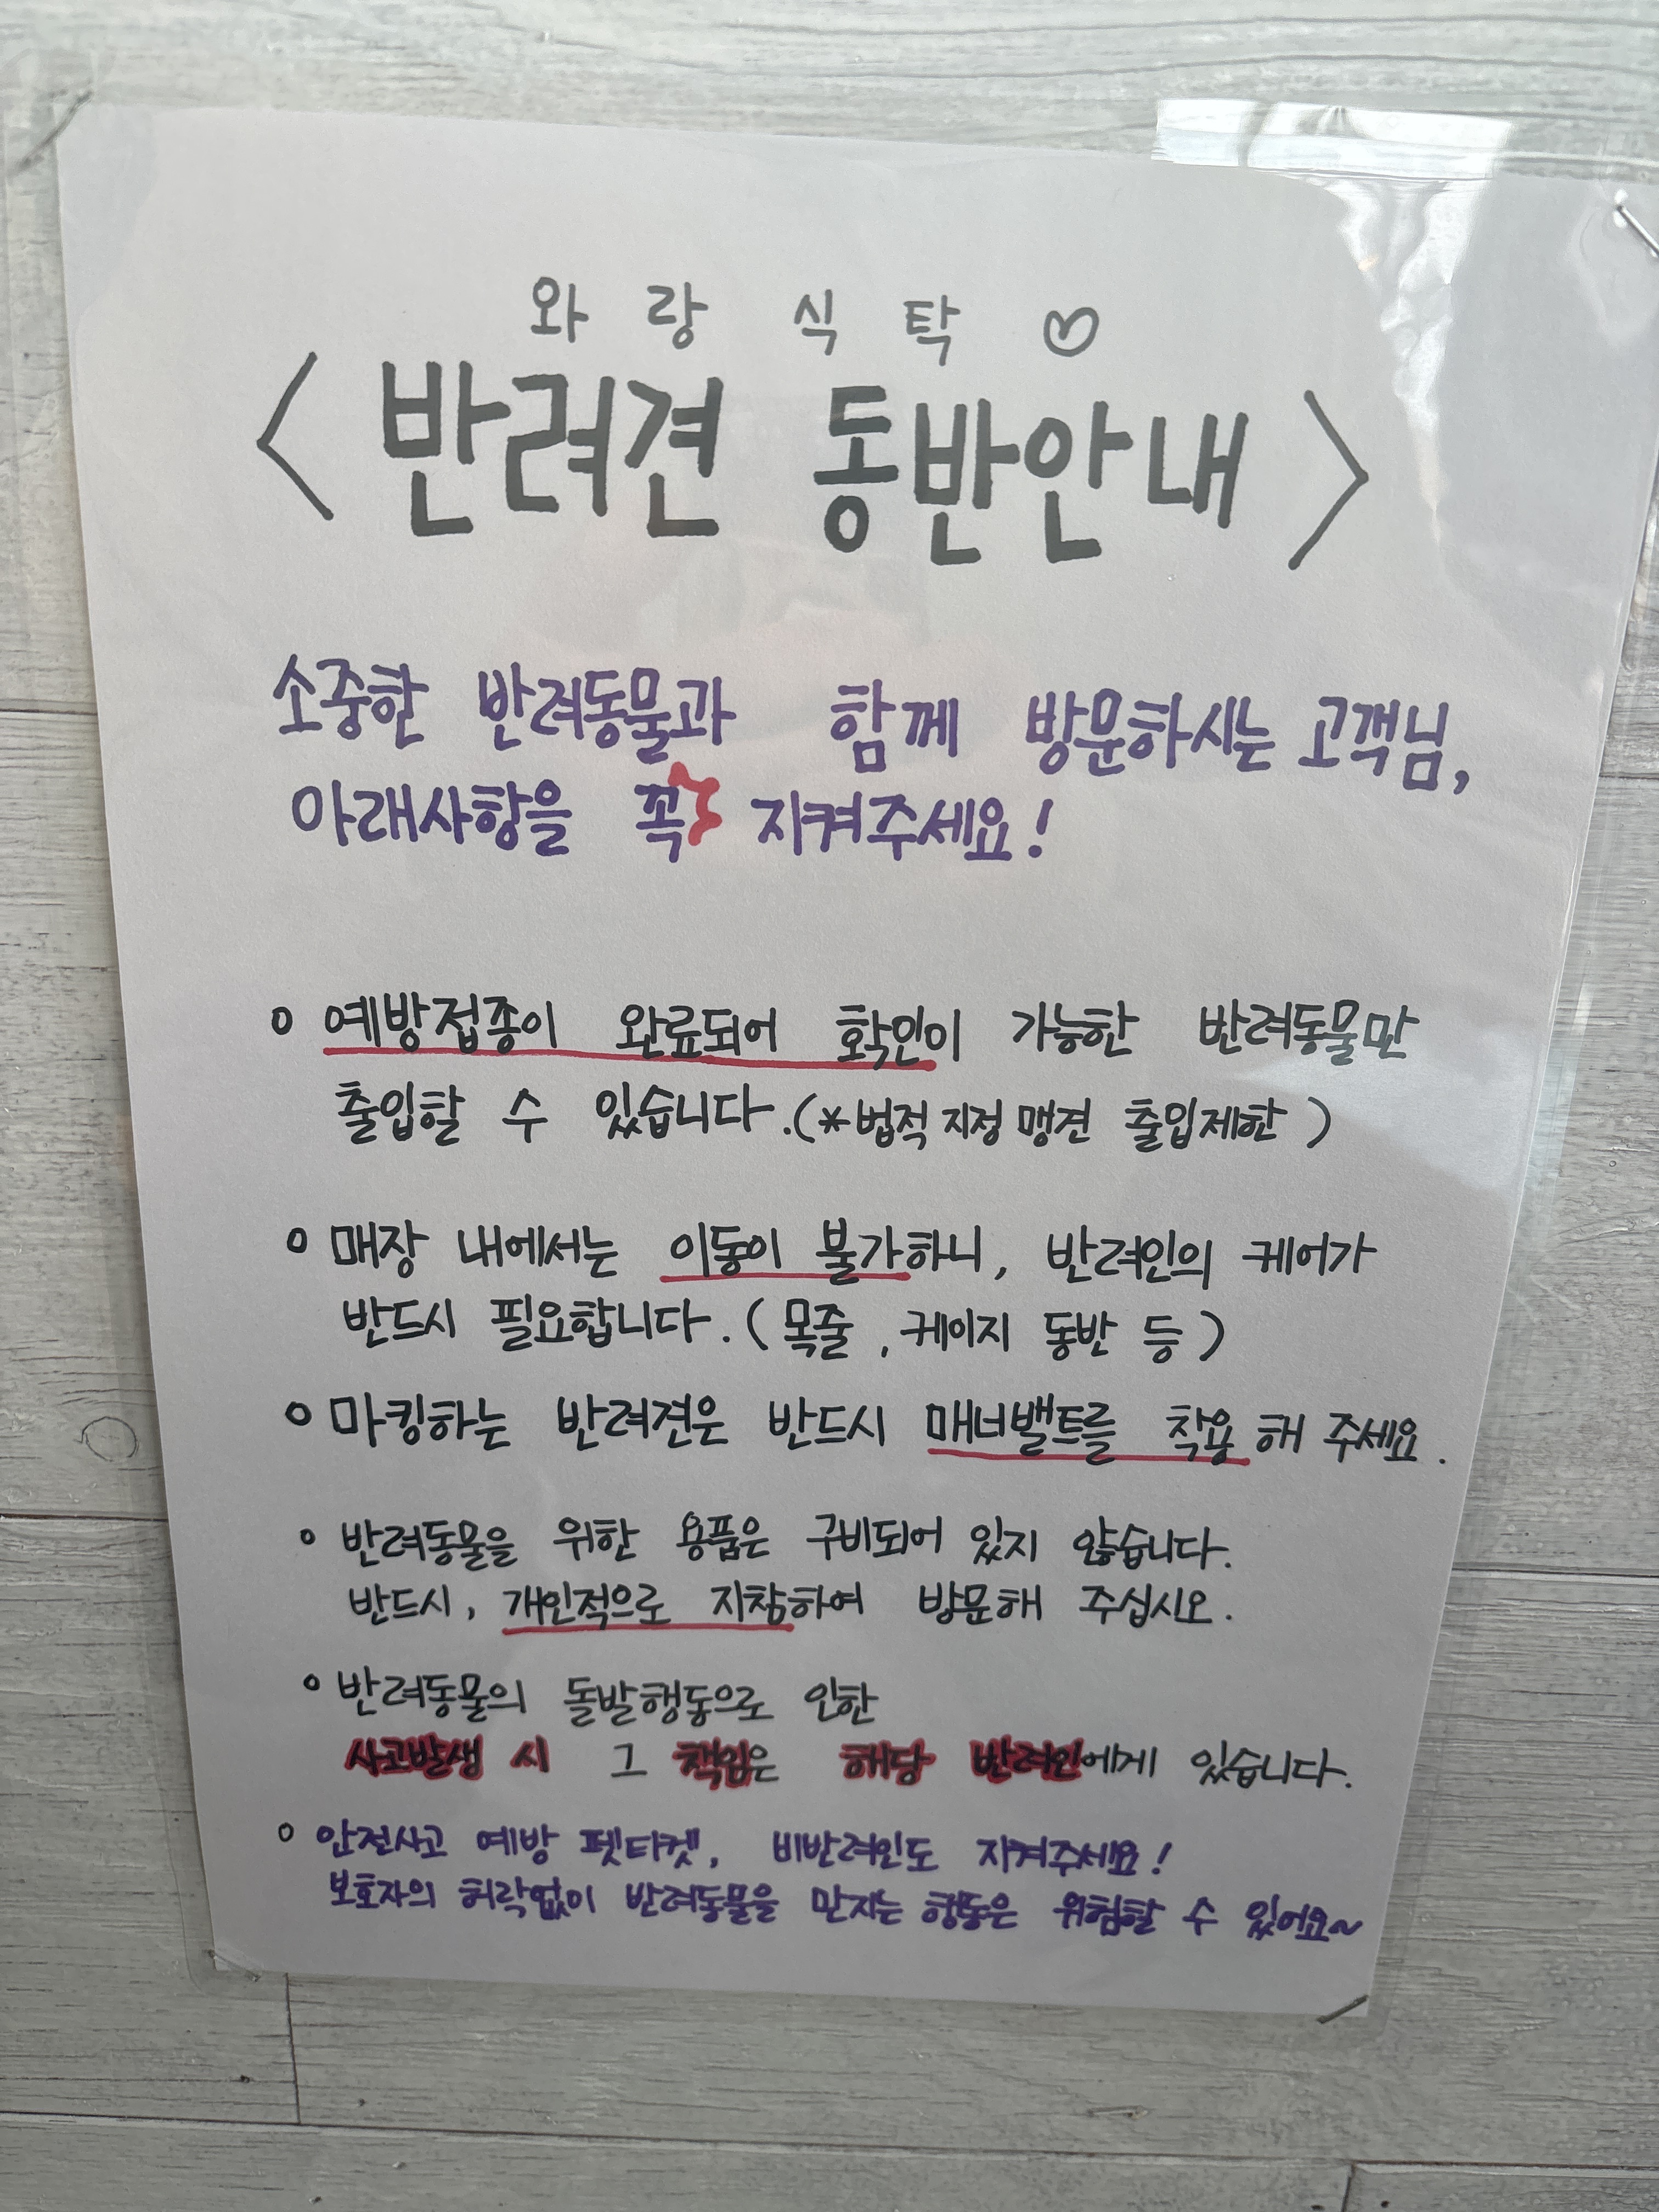 와랑식탁♡
<반려견 동반안내>
소중한 반려동물과 함께 방문하시는 고객님,
아래사항을 꼭 지켜주세요!
o 예방접종이 완료되어 확인이 가능한 반려동물만
출입할 수 있습니다.(*법적 지정 맹견 출입제한)
o 매장 내에서는 이동이 불가하니, 반려인의 케어가
반드시 필요합니다.(목줄, 케이지 동반 등)
o 마킹하는 반려견은 반드시 매너밸트를 착용해 주세요.
o 반려동물을 위한 용품은 구비되어 있지 않습니다.
반드시, 개인적으로 지참하여 방문해 주십시오.
o 반려동물의 돌발행동으로 인한
사고발생 시 그 책임은 해당 반려인에게 있습니다.
o 안전사고 예방 펫티켓, 비반려인도 지켜주세요!
보호자의 허락없이 반려동물을 만지는 행동은 위험할 수 있어요~